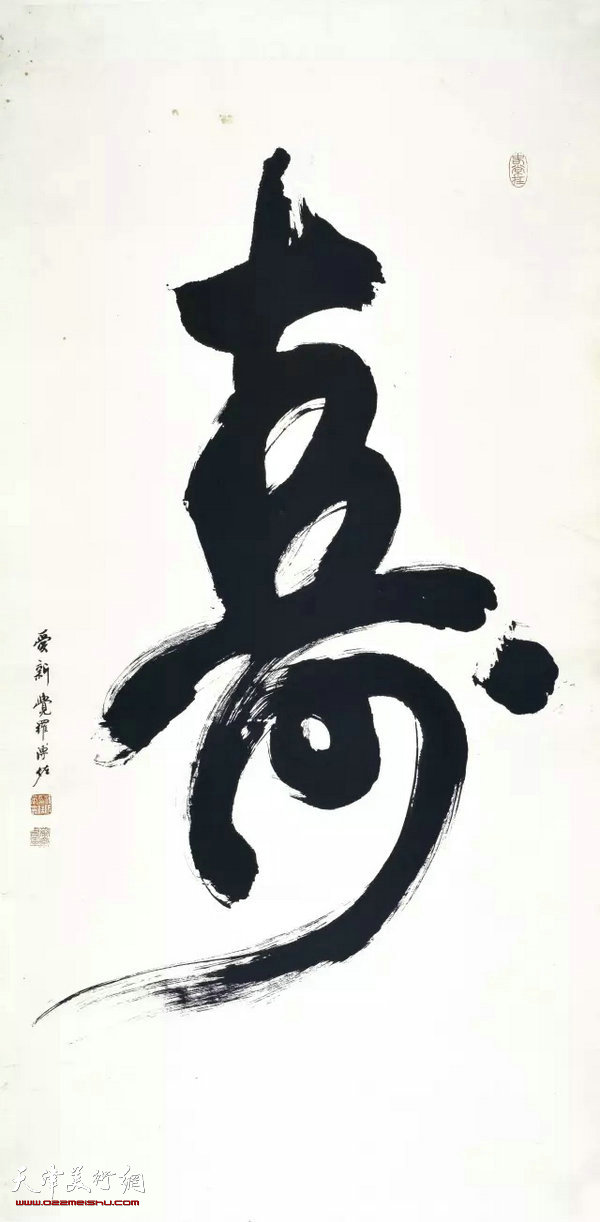 寿
爱新觉罗溥佐
天津美術網
www.022meishu.com